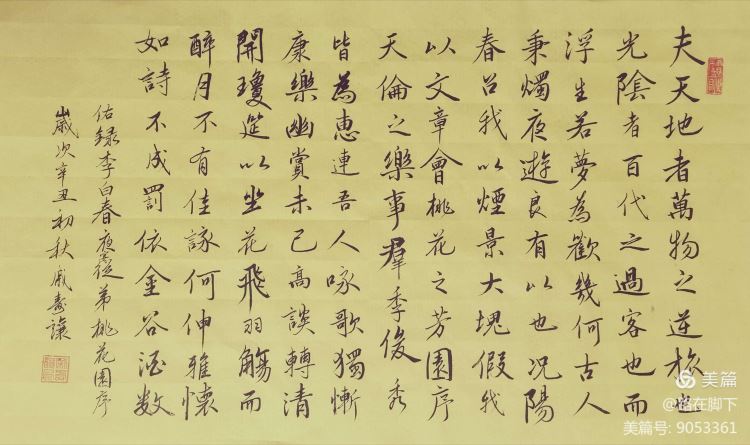 夫天地者萬物之逆旅也
光陰者百代之過客也而
浮生若夢為歡幾何古人
秉燭夜遊良有以也況陽
春召我以煙景大塊假我
以文章會桃花之芳園序
天倫之樂事羣季俊秀
皆為惠連吾人咏歌獨慚
康樂幽賞未已高談轉清
開瓊筵以坐花飛羽觴而
醉月不有佳詠何伸雅懷
如詩不成罰依金谷酒數
佑錄李白春夜從弟桃花園序
歲次辛丑初秋戚壽
美篇
@路在脚下
美篇号: 9053361